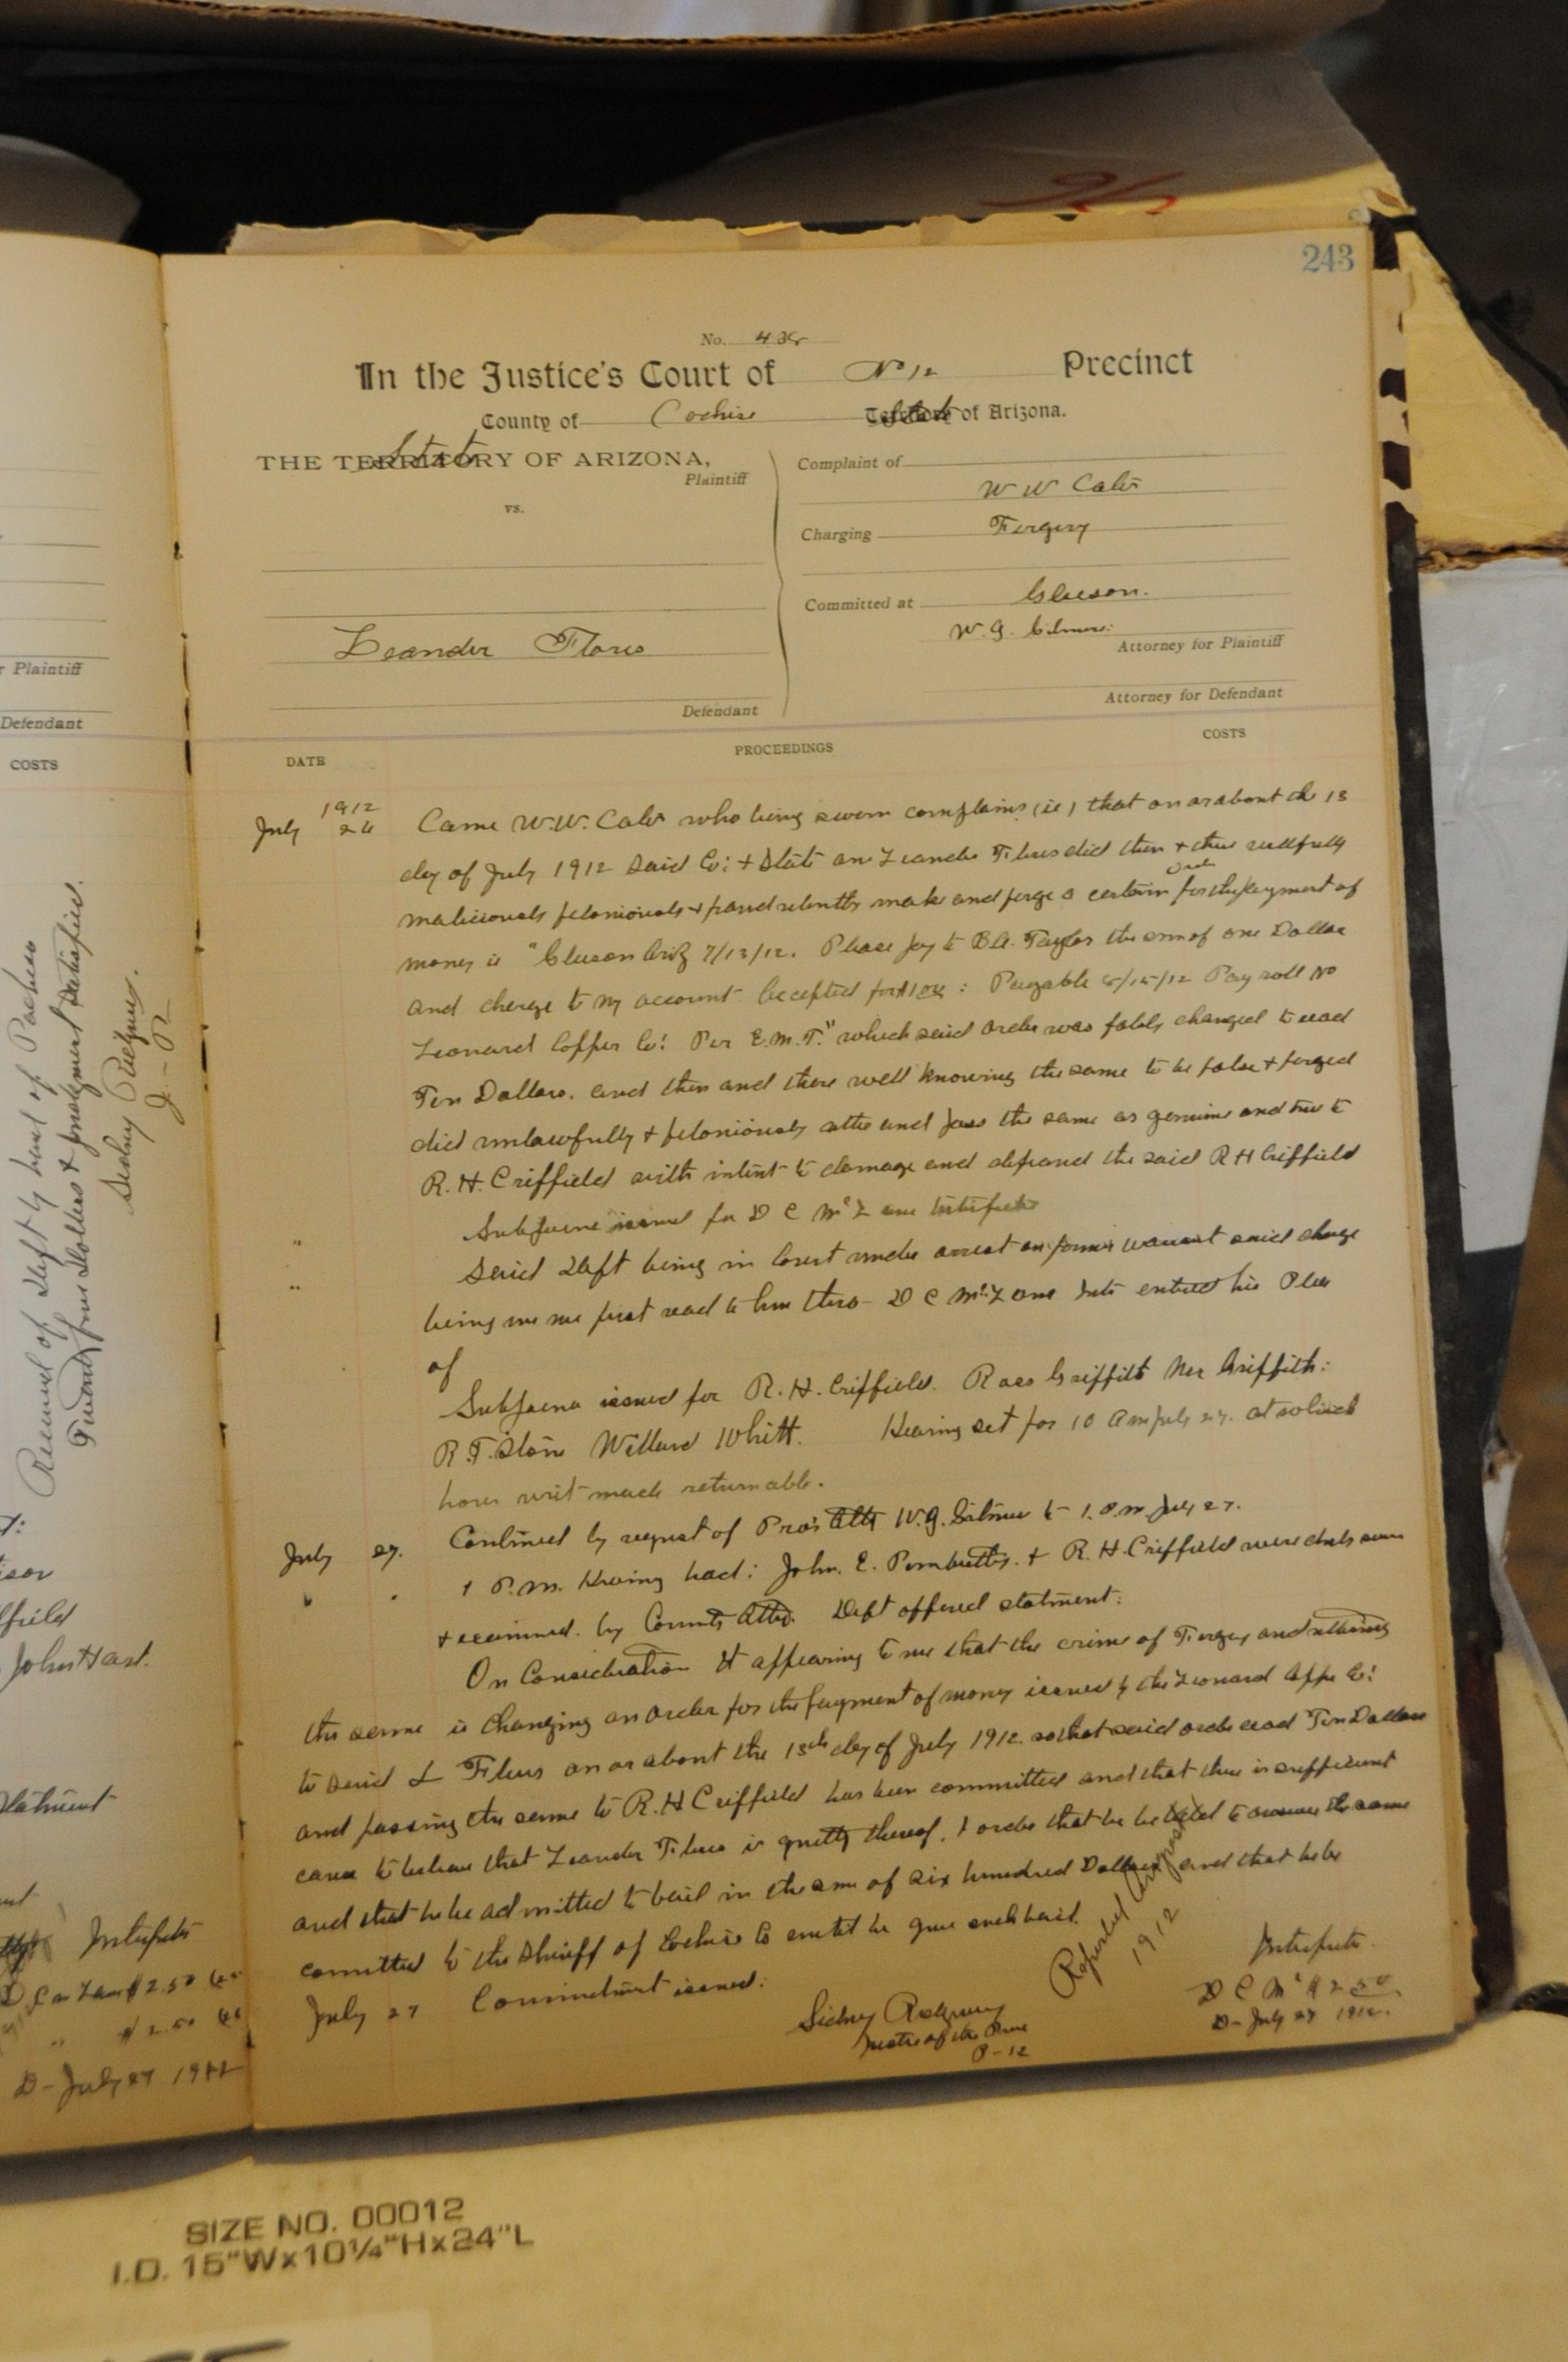 243
No. 438
In the Justice's Court of No 12 Precinct
County of Cochise State of Arizona.
THE State OF ARIZONA,
Plaintiff
vs.
Leander Flores
Defendant
Complaint of
W W Cales
Charging Forgery
Committed at Gleeson.
W. G. Gilmore
Attorney for Plaintiff
Attorney for Defendant
DATE PROCEEDINGS COSTS
1912
July 26 Came W.W. Cales who being sworn complains (ie) that on or about the 13
day of July 1912 said Co: & State one Leander Flores did then & there willfully
maliciously feloniously & fraudulently make and forge a certain order for the payment of
money ie "Gleeson Ariz 7/13/12. Please pay to B.A. Taylor the sum of one Dollar
and charge to my account Accepted for : Payable 8/15/12 Pay roll No
Leonard Copper Co: Per E.M.T." which said order was falsly changed to read
Ten Dollars. and then and there well knowing the same to be false & forged
did unlawfully & feloniously utter and pass the same as genuine and true to
R. H. Criffield with intent to damage and defraud the said R H Criffield
" Subpoena issued for D C McLane Interpreter
" Said Deft being in Court under arrest on former warrant said charge
being me first read to him thro- D C McLane Intr entered his Plea
of
Subpoena issued for R. H. Criffield. Ross Griffith Mrs Griffith:
R. T. Stone Willard Whitt. Hearing set for 10 am July 27. at which
hour writ made returnable.
July 27. Continued by request of Pros Atty W. G. Gilmore to 1. P.m. July 27.
" 1 P.m. Hearing had: John. E. & R. H. Criffield were duly sworn
& examined. by County Atty. Deft offered statment:
On Consideration It appearing to me that the crime of Forgery and
the same ie changing an order for the payment of money issued by the Leonard Copper Co:
to said L Flores on or about the 13th day of July 1912 so that said order read Ten Dollars
and passing the same to R. H Criffield has been committed and that there is sufficient
cause to believe that Leander Flores is guilty thereof, I order that he be held to answer the same
and that he be admitted to bail in the sum of six hundred Dollars and that he be
committed to the Sheriff of Cochise Co until he give such bail.
July 27 Commitment issued:
Sidney
Justice of the Peace
P-12
Reported
1912
Interpreter
D C Mc $ 2.50
D- July 27 1912.
r Plaintiff
Defendant
COSTS
Received of Deft by hand of Pacheco
Twenty four Dollars & judgment Satisfied.
Sidney
J-P
lfield
John Hart.
Statment
Interpreter
$ 2.50
" $ 2.50
D- July 27 1912
SIZE NO. 00012
I.D. 15"Wx10¼"Hx24"L